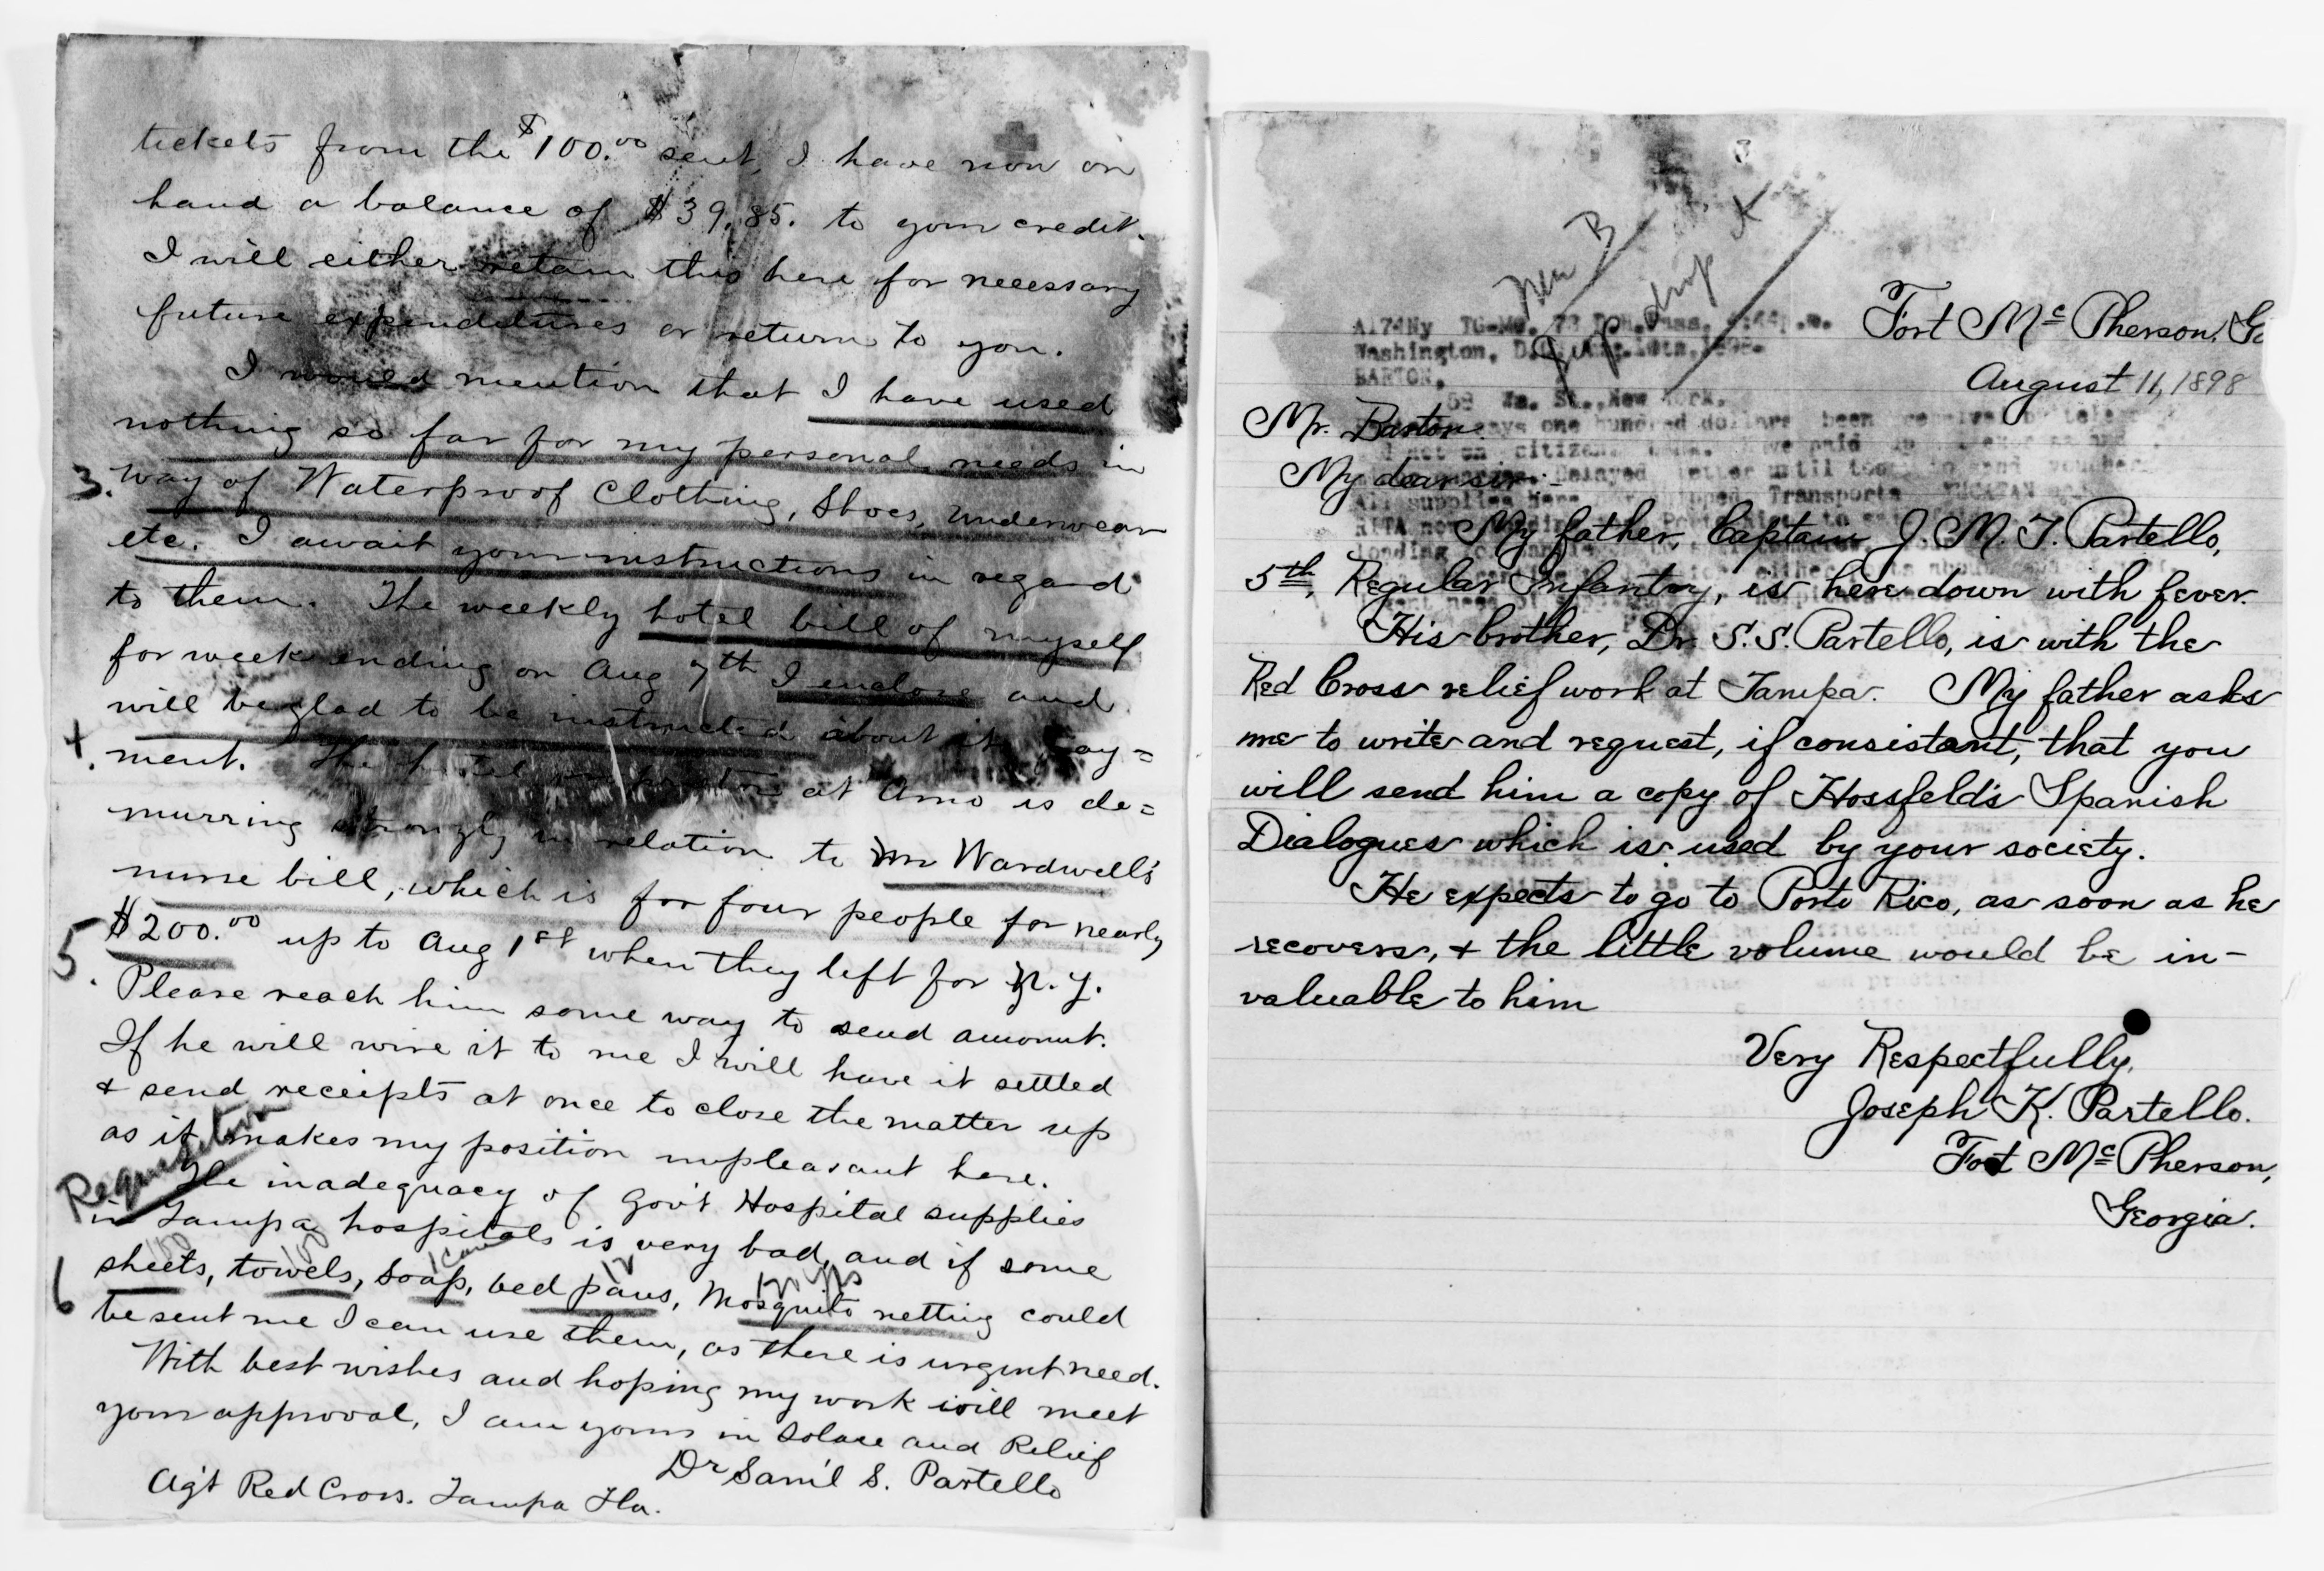 tickets from the $100.00 sent, I have now on
hand a balance of $39.85. to your credit.
I will either retain this here for necessary
future expenditures or return to you.
I would mention that I have used
nothing so far for my personal needs in
3. way of Waterproof Clothing, Shoes, underwear
etc. I await your instructions in regard
to them. The weekly hotel bill of myself
for week ending on Aug 7th I enclose and
will be glad to be instructed about its pay=
ment. The hotel at Arno is de=
murring strongly in relation to Mr Wardwell's
nurse bill, which is for four people for nearly
5. $200.00 up to Aug 1st when they left for N.Y.
Please reach him some way to send amount.
If he will wire it to me I will have it settled
& send receipts at once to close the matter up
as it makes my position unpleasant here.
Requisition
The inadequacy of Gov't Hospital supplies
in Tampa hospitals is very bad, and if some
1 case 12
6 sheets, towels, soap, bed pans, Mosquito netting could
be sent me I can use them, as there is urgent need.
With best wishes and hoping my work will meet
your approval, I am yours in Solace and Relief
Dr Sam'l S. Partello
Ag't Red Cross. Tampa Fla.
Fort Mc Pherson, Ga
August 11, 1898
A174Ny
Washington, D.C.
BARTON,
58 Wm. St., New York.
Mr. Barton
My dear sir:-
My father, Captain J. M. T. Partello,
5th, Regular Infantry, is here down with fever.
His brother, Dr. S. S. Partello, is with the
Red Cross relief work at Tampa. My father asks
me to write and request, if consistant, that you
will send him a copy of Hossfeld's Spanish
Dialogues which is used by your society.
He expects to go to Porto Rico, as soon as he
recovers, & the little volume would be in-
valuable to him
Very Respectfully,
Joseph K. Partello.
Fort Mc Pherson,
Georgia.